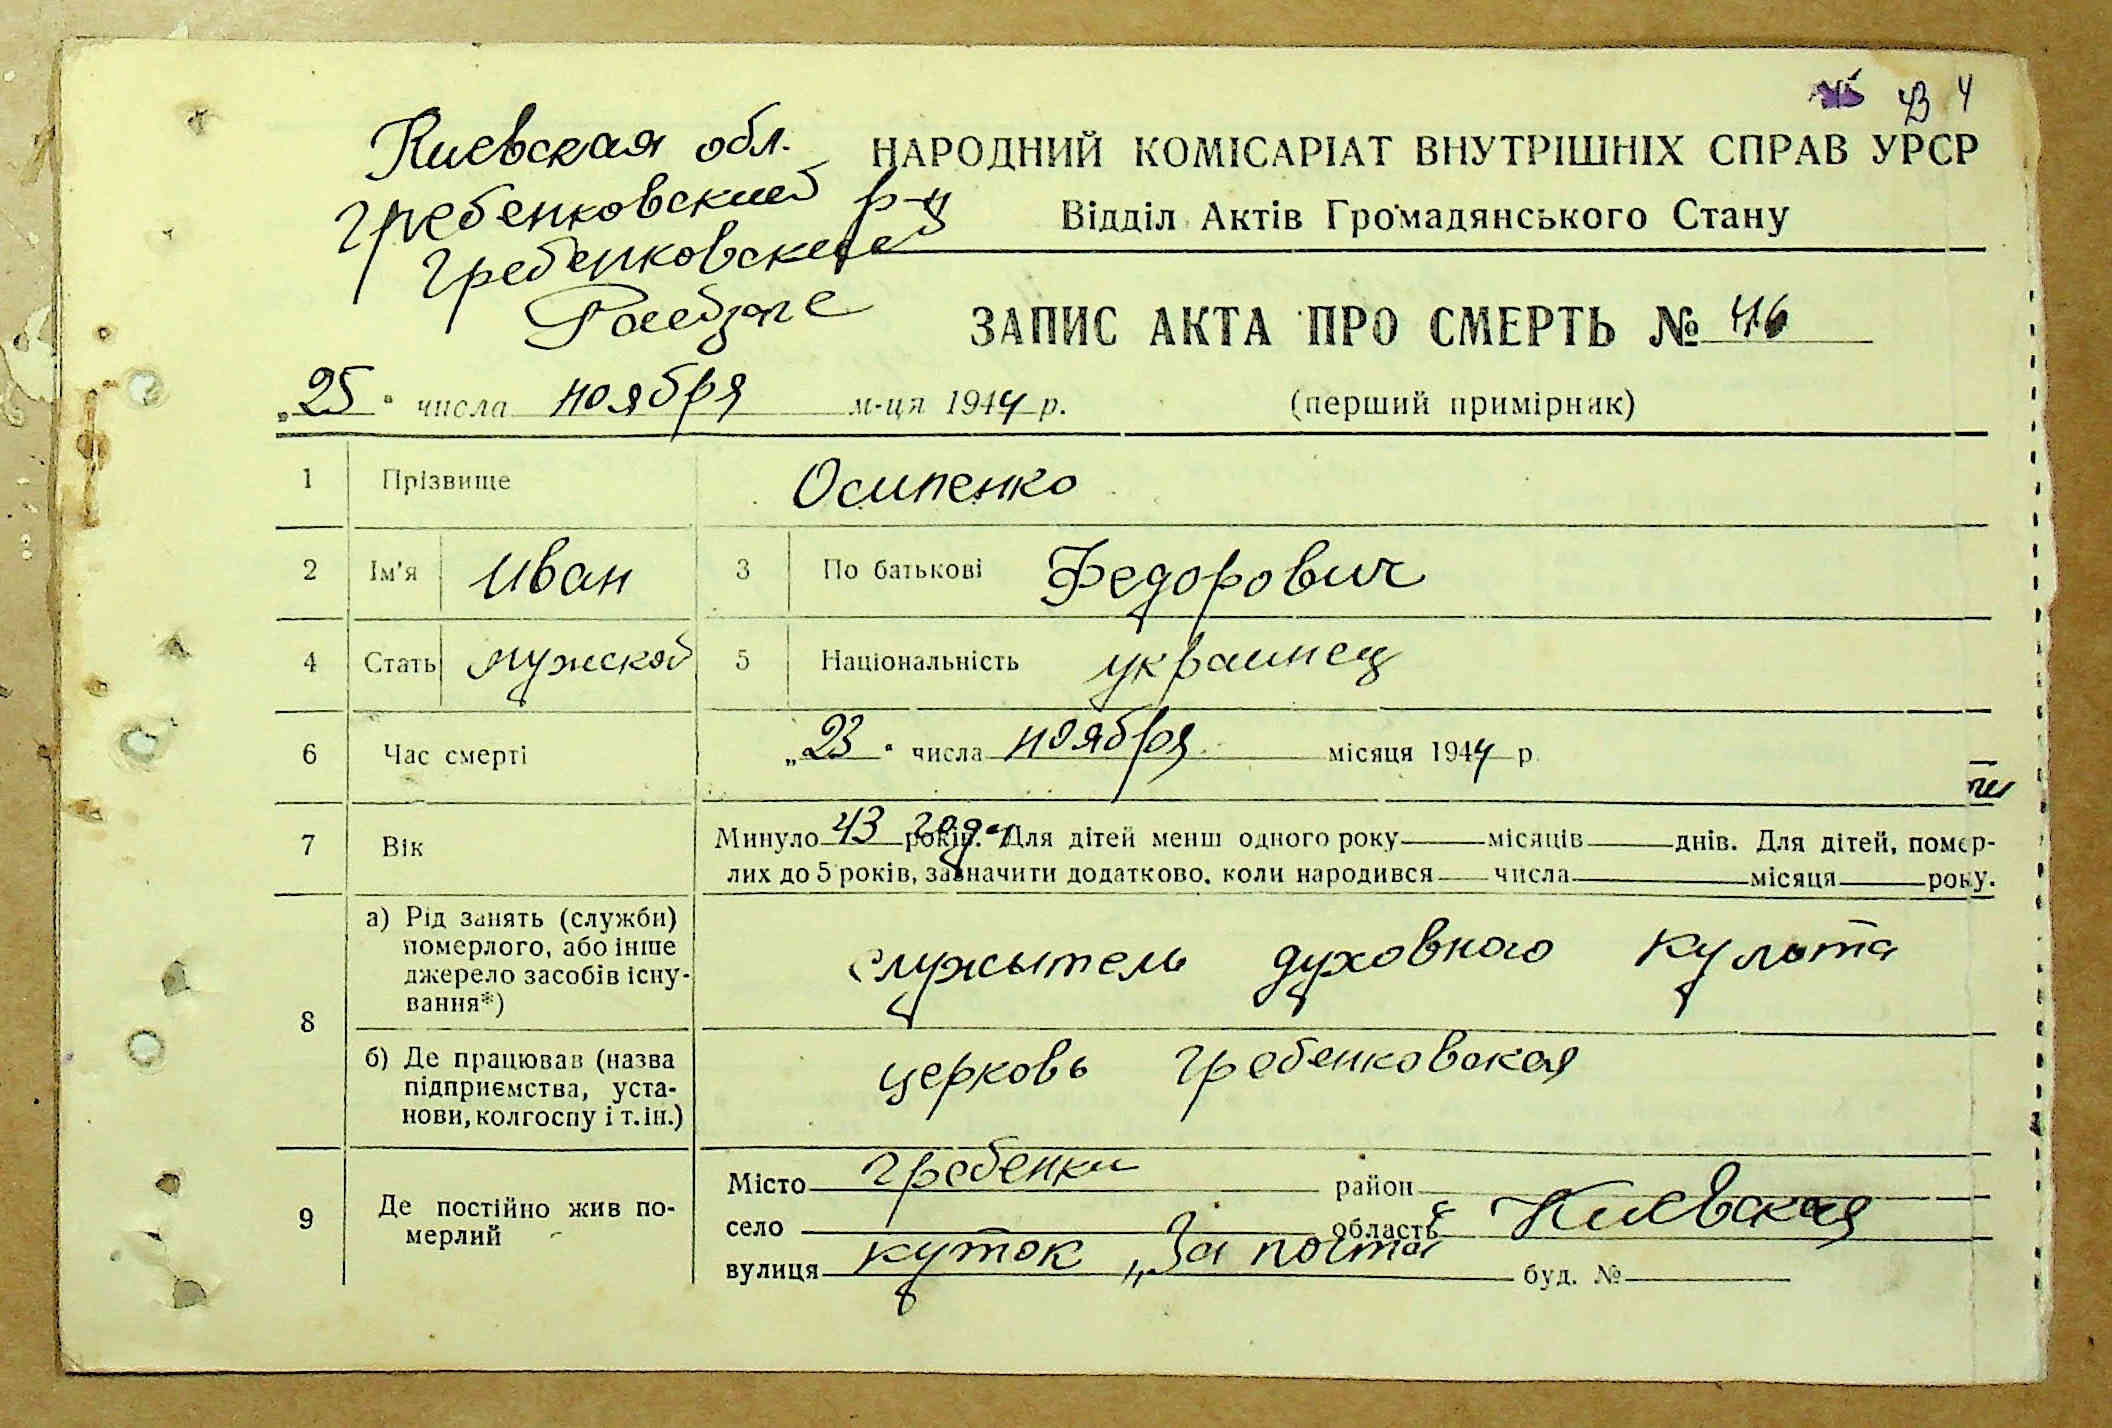 43 4
Киевская обл.
НАРОДНИЙ КОМІСАРІАТ ВНУТРІШНІХ СПРАВ УРСР
гребенковский р-н
Відділ Актів Громадянського Стану
гребенковское
Раебзаге
ЗАПИС АКТА ПРО СМЕРТЬ № 46
„25" числа ноября м-ця 1944 р.
(перший примірник)
1 Прізвище Осипенко
2 Ім'я Иван 3 По батькові Федорович
4 Стать мужской 5 Національність украинец
6 Час смерті „23" числа ноября місяця 1944 р
7 Вік Минуло 43 года років. Для дітей менш одного року місяців днів. Для дітей, помер-
лих до 5 років, зазначити додатково, коли народився числа місяця року.
8 а) Рід занять (служби)
померлого, або інше
джерело засобів існу-
вання*)
служытель духовного культа
б) Де працював (назва
підприємства, уста-
нови, колгоспу і т.ін.)
церковь гребенковская
9 Де постійно жив по-
мерлий
Місто гребенки район
село область Киевская
вулиця куток „За почтой" буд. №